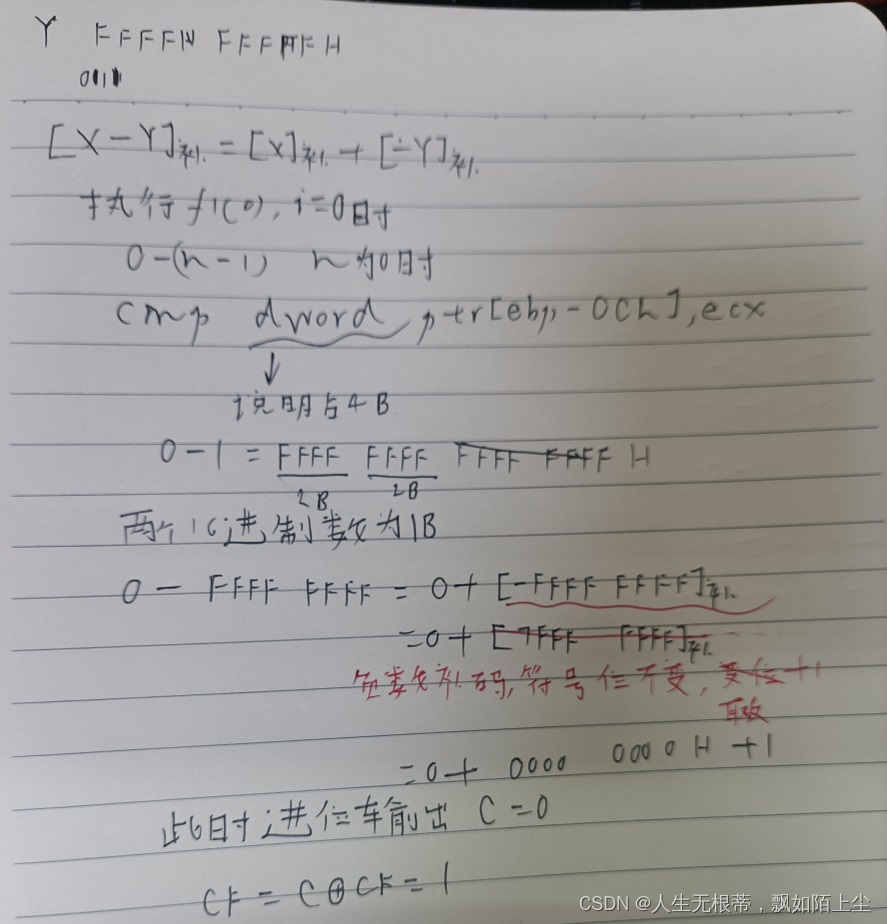 Y FFFFH FFFFFH
011
[X-Y]补 = [X]补 + [-Y]补
执行f1(0), i=0时
0-(n-1) n为0时
cmp dword ptr[ebp-0Ch],ecx
↓
说明占4B
0-1 = FFFF FFFF FFFF FFFF H
2B 2B
两个16进制数为1B
0 - FFFF FFFF = 0+[-FFFF FFFF]补
=0+[7FFF FFFF]补
负数补码,符号位不变, +1
取
=0+ 0000 0000H +1
此时进位输出 C=0
CF = C⊕CF = 1
CSDN @人生无根蒂，飘如陌上尘